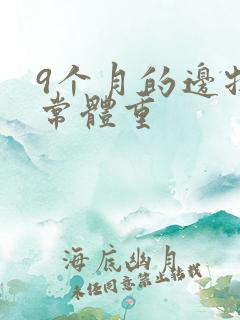 9个月的邊牧
常體重
海底幽月
未经同意禁止转载